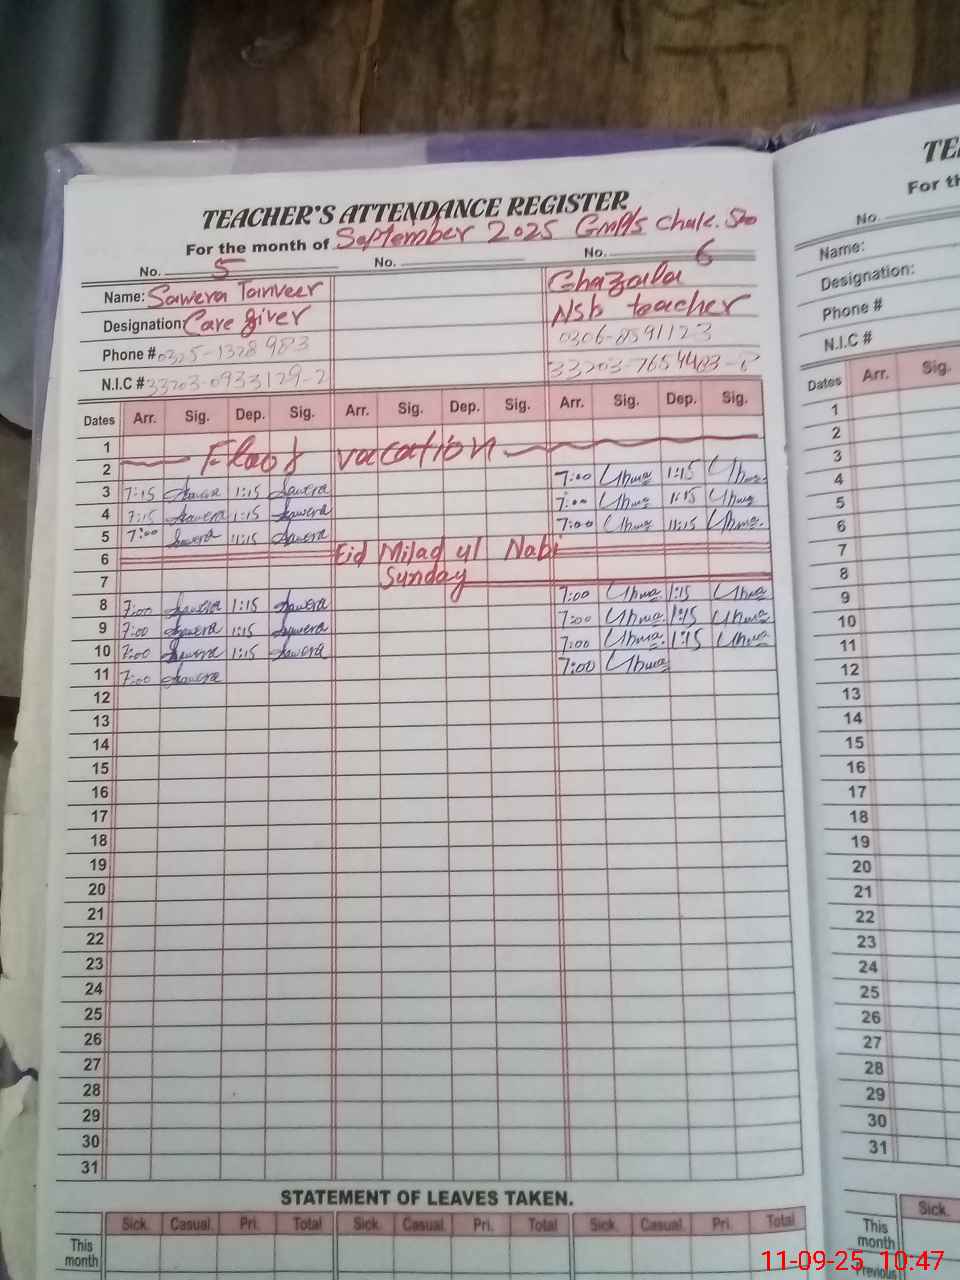 TEACHER'S ATTENDANCE REGISTER
For the month of September 2025 GMP/s Chak.
No. 5 No. No. 6
Name: Sawera Tanveer Ghazala
Designation: Care giver Nsb teacher
Phone # 0325-1328983 0306-8591123
N.I.C # 33203-0933129-2 33203-7654483-8
Dates Arr. Sig. Dep. Sig. Arr. Sig. Dep. Sig. Arr. Sig. Dep. Sig.
1 Flood vacation
2 7:00 1:15
3 7:15 Sawera 1:15 Sawera 7:00 1:15
4 7:15 Sawera 1:15 Sawera 7:00 11:15
5 7:00 Sawera 11:15 Sawera
6 Eid Milad ul Nabi
7 Sunday
8 7:00 Sawera 1:15 Sawera 7:00 1:15
9 7:00 Sawera 1:15 Sawera 7:00 1:15
10 7:00 Sawera 1:15 Sawera 7:00 1:15
11 7:00 Sawera 7:00
12
13
14
15
16
17
18
19
20
21
22
23
24
25
26
27
28
29
30
31
STATEMENT OF LEAVES TAKEN.
Sick. Casual. Pri. Total Sick. Casual. Pri. Total Sick. Casual. Pri. Total
This month
TE
For th
No.
Name:
Designation:
Phone #
N.I.C #
Dates Arr. Sig.
1
2
3
4
5
6
7
8
9
10
11
12
13
14
15
16
17
18
19
20
21
22
23
24
25
26
27
28
29
30
31
Sick.
This month
Previous
11-09-25 10:47